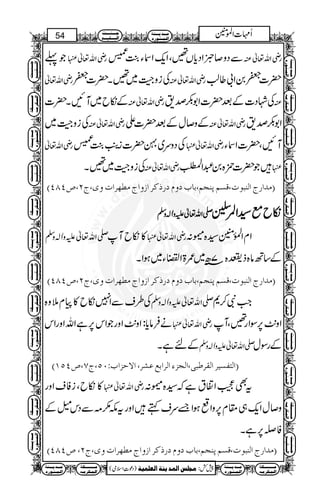 54
اُمہاتُ المؤمنین
رضی اللہ تعالیٰ عنہ سے دو صاحبزادیاں تھیں، ایک اسماء بنت عمیس رضی اللہ تعالیٰ عنہا جو پہلے
حضرت جعفر بن ابی طالب رضی اللہ تعالیٰ عنہ کی زوجیت میں تھیں۔ حضرت جعفر رضی اللہ تعالیٰ
عنہ کی شہادت کے بعد حضرت ابوبکر صدیق رضی اللہ تعالیٰ عنہ کے نکاح میں آئیں۔ حضرت
ابوبکر صدیق رضی اللہ تعالیٰ عنہ کے وصال کے بعد حضرت علی رضی اللہ تعالیٰ عنہ کی زوجیت میں
آئیں، حضرت اسماء رضی اللہ تعالیٰ عنہا کی دوسری بہن حضرت زینب بنت عمیس رضی اللہ تعالیٰ
عنہا ہیں جو حضرت حمزہ بن عبدالمطلب رضی اللہ تعالیٰ عنہ کی زوجیت میں تھیں۔
(مدارج النبوت،قسم پنجم،باب دوم درذکر ازواج مطہرات وی،ج۲،ص٤٨٤)
نکاح مع سید المرسلین صلی اللہ تعالیٰ علیہ والہ وسلم
ام المؤمنین سیدہ میمونہ رضی اللہ تعالیٰ عنہا کا نکاح آپ صلی اللہ تعالیٰ علیہ والہ وسلم
کے ساتھ ماہ ذیقعدہ ۷ھ میں عمرۃ القضاء میں ہوا۔
(مدارج النبوت،قسم پنجم،باب دوم درذکر ازواج مطہرات وی،ج۲،ص٤٨٤)
جب نبی کریم صلی اللہ تعالیٰ علیہ والہ وسلم کی طرف سے انہیں نکاح کا پیام ملا وہ
اونٹ پر سوار تھیں، آپ رضی اللہ تعالیٰ عنہا نے فرمایا: اونٹ اور جو اس پر ہے اللہ اور اس
کے رسول صلی اللہ تعالیٰ علیہ والہ وسلم کے لئے ہے۔
(التفسیر القرطبی،الجزء الرابع عشر، الاحزاب:٥٠،ج٧،ص١٥٤)
یہ بھی عجیب اتفاق ہے کہ سیدہ میمونہ رضی اللہ تعالیٰ عنہا کا نکاح، زفاف اور
وصال ایک ہی مقام پر واقع ہوا ہے جسے سرف کہتے ہیں اور یہ مکہ مکرمہ سے دس میل کے
فاصلہ پر ہے۔
(مدارج النبوت،قسم پنجم،باب دوم درذکر ازواج مطہرات وی،ج۲،ص٤٨٤)
پیش کش: مجلس المدینۃ العلمیۃ (دعوتِ اسلامی)